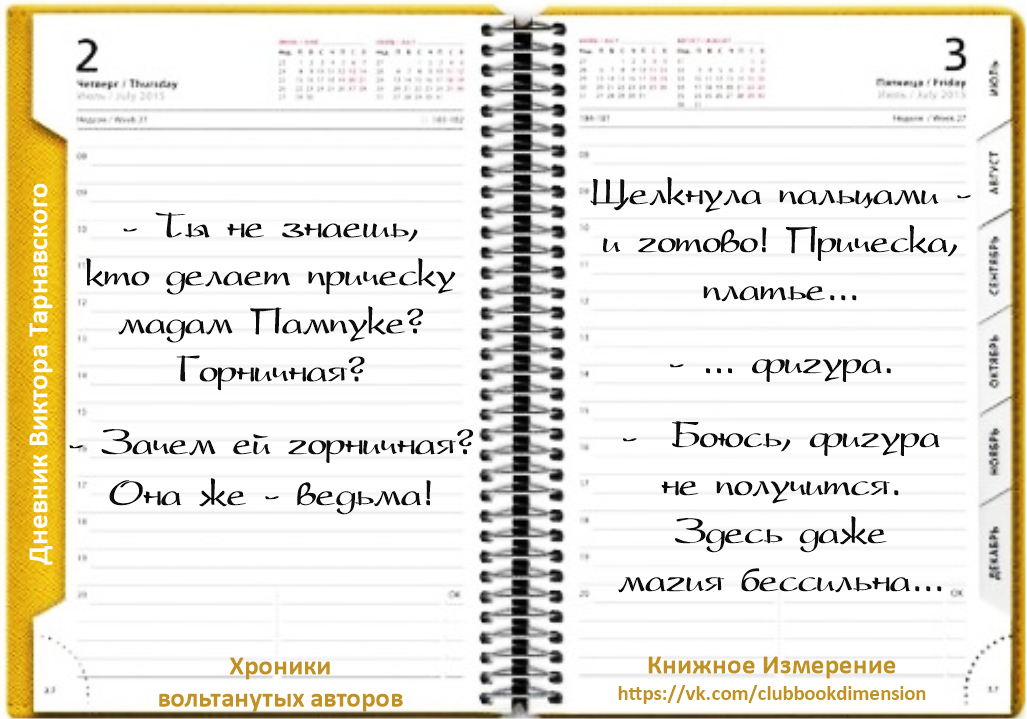 Дневник Виктора Тарнавского
2
Четверг / Thursday
Июль / July 2015
Неделя / Week 27
- Ты не знаешь,
кто делает прическу
мадам Пампуке?
Горничная?
- Зачем ей горничная?
Она же - ведьма!
Хроники
вольтанутых авторов
3
Пятница / Friday
Июль / July 2015
Неделя / Week 27
Щелкнула пальцами -
и готово! Прическа,
платье...
- ... фигура.
- Боюсь, фигура
не получится.
Здесь даже
магия бессильна...
Книжное Измерение
https://vk.com/clubbookdimension
ИЮЛЬ
АВГУСТ
СЕНТЯБРЬ
ОКТЯБРЬ
НОЯБРЬ
ДЕКАБРЬ